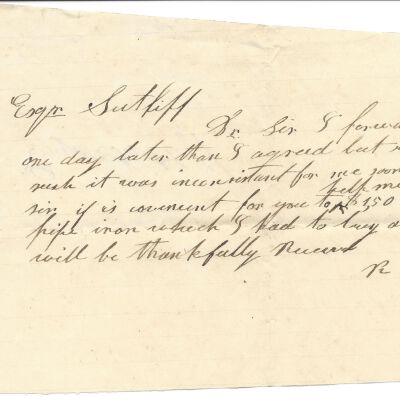 Esqr Sutliff
Dr Sir I forwa
one day later than I agreed but
rush it was inconsistant for me soon
help me
sir if is convenent for you to $1.50
pipe iron which I had to buy a
will be thankfully Receivd
R